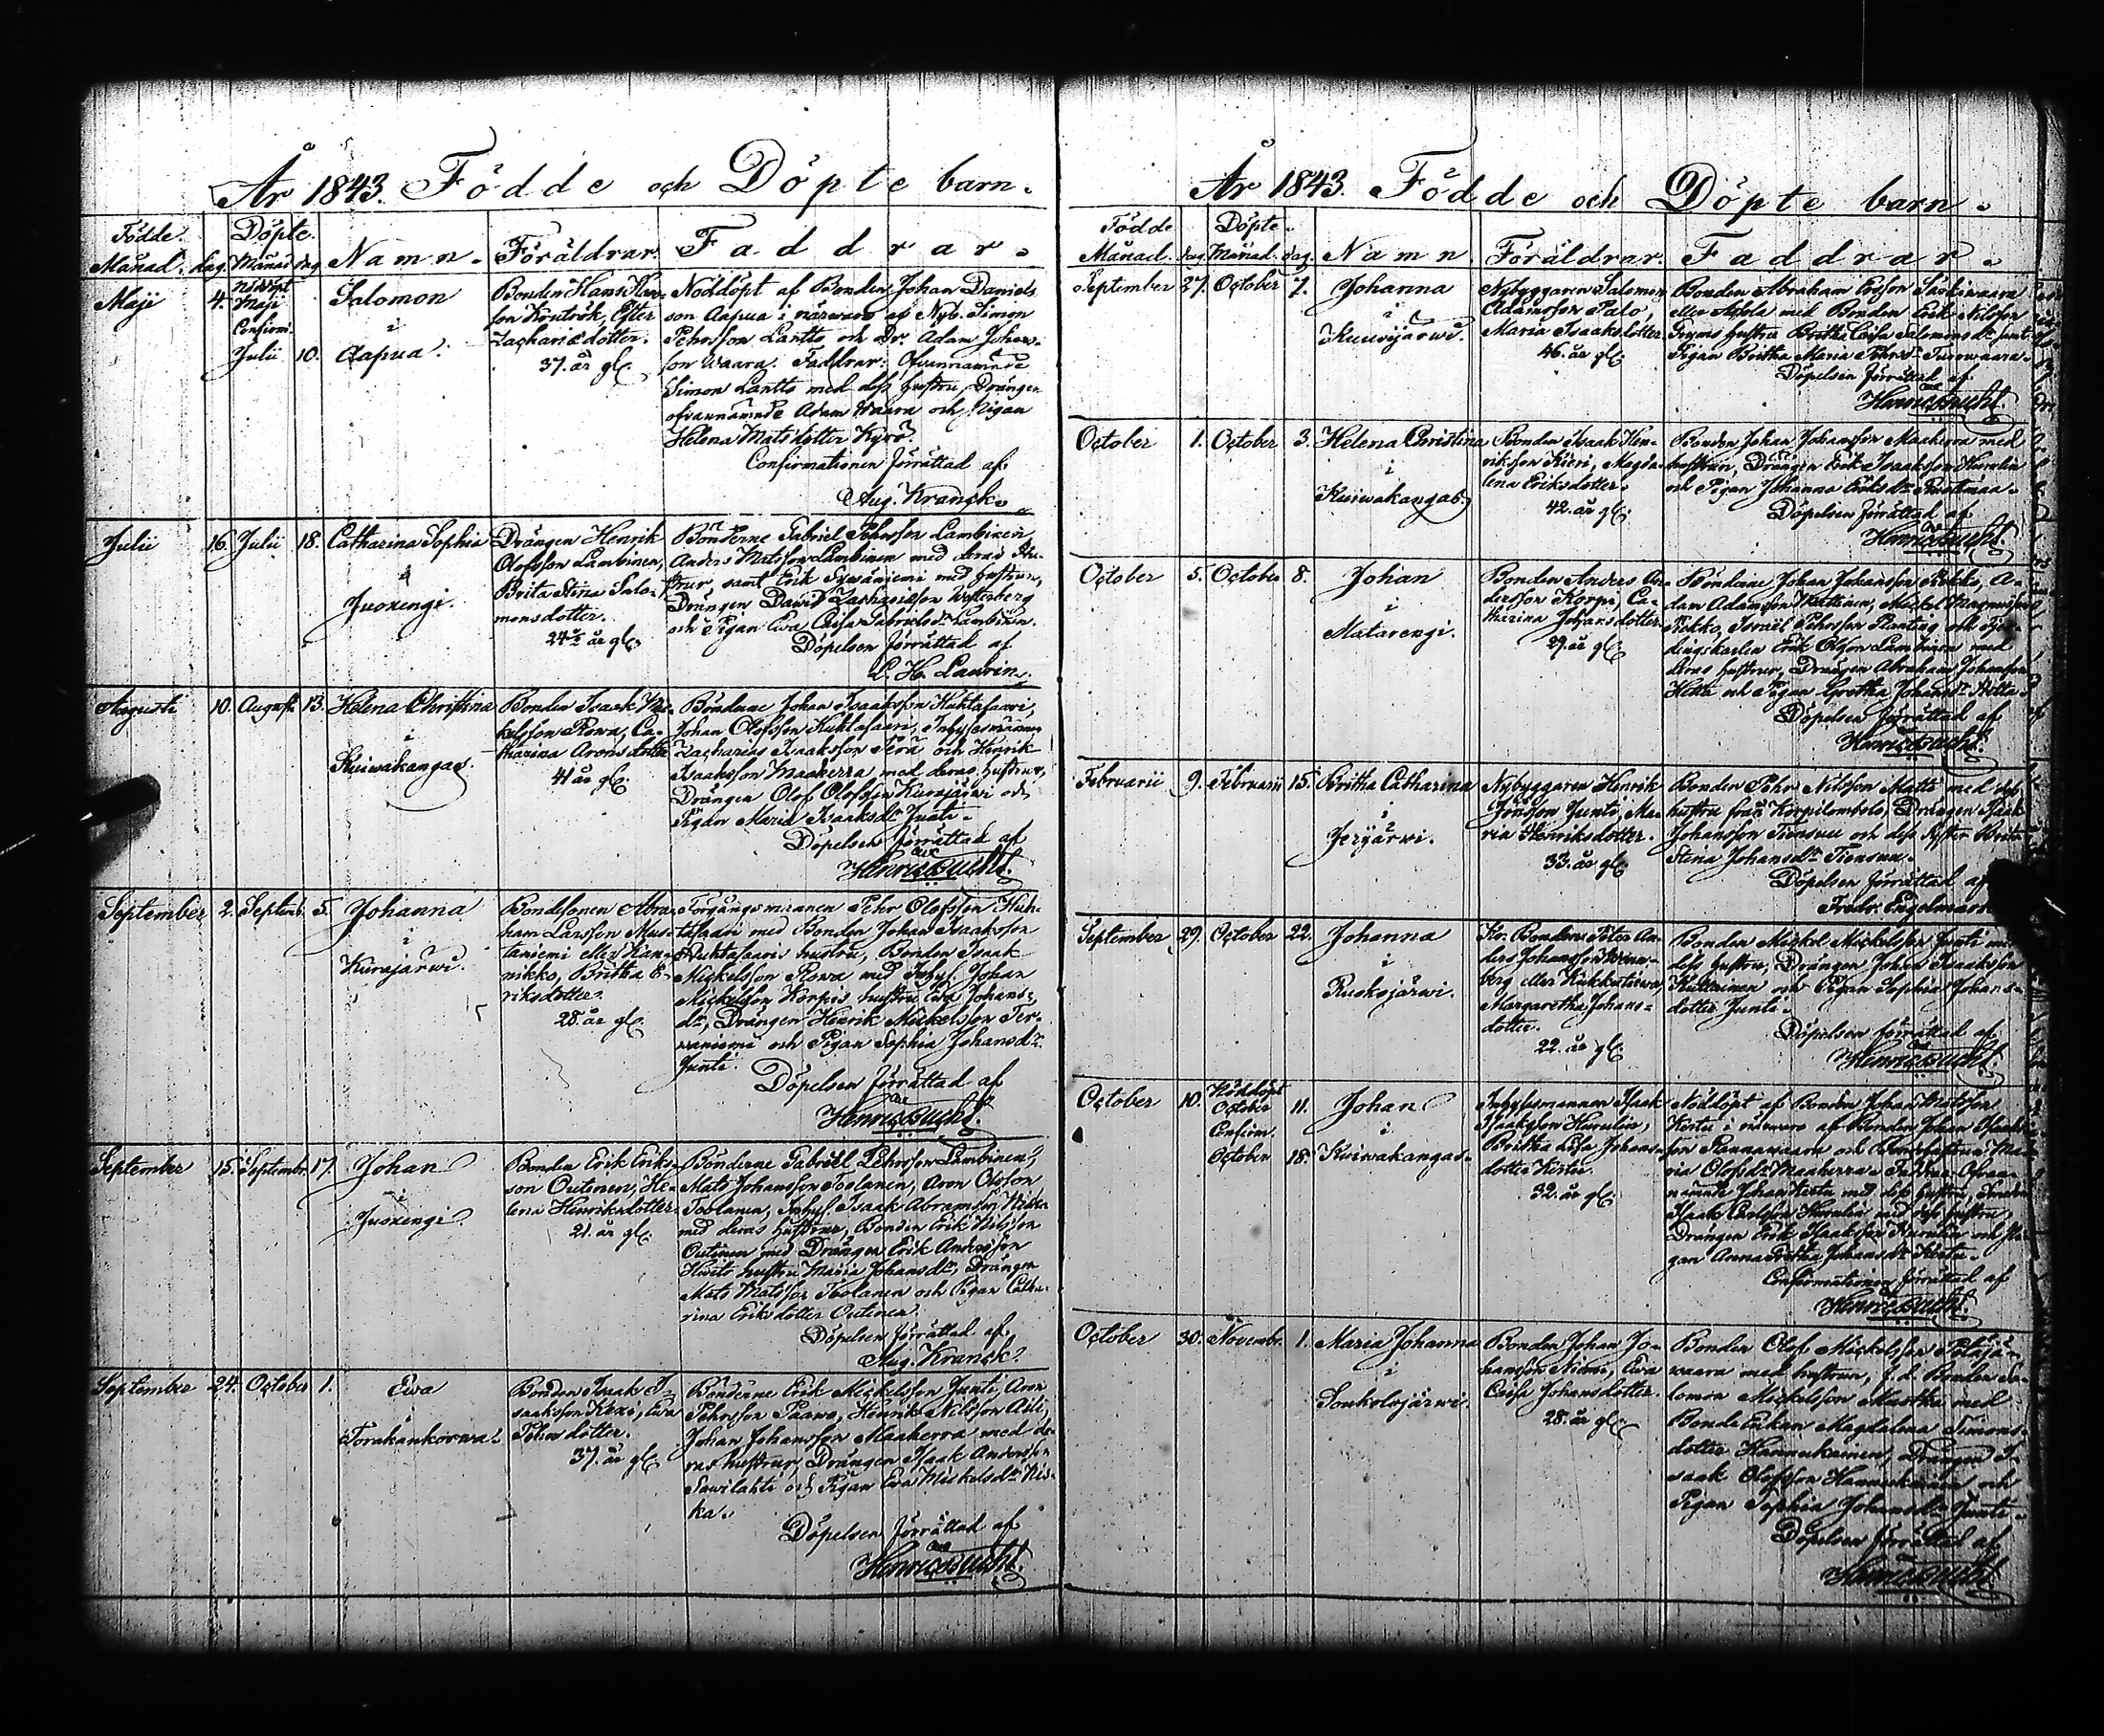 År 1843. Födde och Döpte barn.
Födde. Döpte. Namn. Föräldrar. Faddrar.
Månad. dag. Månad dag
Maji 4. Nöddöpt Maji
Confirm.
Julii 10.
Salomon
i
Aapua.
Bonden Hans Han-
son Kontrök,
Zachariædotter.
37. år gl.
Nöddöpt af Bonden Johan Daniels
son Aapua i närwaro af Nyb. Simon
Pehrsson Lantto och Dr. Adam Johans-
son Waara. Faddrar: Ofvannämnde
Simon Lantto med dess hustru, Drängen
ofvannämnde Adam Waara och Pigan
Helena Matsdotter Kyrö.
Confirmationen förrättad af
Aug. Kranck.
Julii 16. Julii 18. Catharina Sophia
i
Juoxengi.
Drängen Henrik
Olofsson Lambinen,
Brita Stina Salo-
monsdotter.
24½ år gl.
Bönderne Gabriel Pehrsson Lambinen,
Anders Matsson Lambinen med deras hu-
strur, samt Erik Sywäniemi med hustrun,
Drängen David Zachariæson Westerberg
och Pigan Ewa Caisa Gabrielsdr Lambinen.
Döpelsen förrättad af
L. H. Laurin.
Augusti 10. August. 13. Helena Christina
i
Kuiwakangas
Bonden Isaak Mi-
kelsson Rowa, Ca-
tharina Aronsdotter
41 år gl.
Bönderne Johan Isaaksson Huhtasaari,
Johan Olofsson Huhtasaari, Inhysesmännen
Zacharias Isaaksson Perä och Henrik
Isaaksson Maakerra med deras hustrur,
Drängen Olof Olofsson Kurajärwi och
Pigan Maria Isaaksdr Junti.
Döpelsen förrättad af
Henric Bucht.
September 2. Septemb. 5. Johanna
i
Kurajärwi.
Bondesonen Abra-
ham Larsson Mus-
taniemi eller Kan-
nikko, Britha E-
riksdotter.
28. år gl.
Förgångsmannen Pehr Olofsson Huh-
tasaari med Bonden Johan Isaaksson
Huhtasaaris hustru, Bonden Isaak
Mickelsson Rowa med Inhys. Johan
Mickelsson Korpis hustru Ewa Johans-
dr, Drängen Henrik Mickelsson Ter-
waniemi och Pigan Sophia Johansdr
Junti.
Döpelsen förrättad af
Henric Bucht.
September 15. Septembr. 17. Johan
i
Juoxengi.
Bonden Erik Eriks-
son Outinen, He-
lena Henriksdotter.
21. år gl.
Bönderne Gabriel Pehrsson Lambinen,
Mats Johansson Toolanen, Aron Olsson
Toolanen, Inhys. Isaak Abramsson Niska
med deras hustrur, Bonden Erik Nilsson
Outinen med Drängen Erik Andersson
Hwits hustru Maria Johansdr, Drängen
Mats Matsson Toolanen och Pigan Catha-
rina Eriksdotter Outinen.
Döpelsen förrättad af
Aug. Kranck.
September 24. October 1. Ewa
Torakankorwa.
Bonden Isaak I-
saaksson Kexi, Ewa
Pehrsdotter.
37. år gl.
Bönderne Erik Mickelsson Junti, Aron
Pehrsson Paawo, Henrik Nilsson Aili,
Johan Johansson Maaherra med de-
ras hustrur, Drängen Isaak Andersson
Sawilahti och Pigan Ewa Mickelsdr Nis-
ka.
Döpelsen förrättad af
Henric Bucht.
År 1843. Födde och Döpte barn.
Födde Döpte. Namn. Föräldrar. Faddrar.
Månad. dag. Månad. dag.
September 27. October 7. Johanna
i
Kuusijärwi.
Nybyggaren Salomon
Adamsson Palo,
Maria Isaaksdotter
46. år gl.
Bonden Abraham Ersson
eller med Bonden Erik Nilsson
hustru Britha Caisa Salomonsdr samt
Pigan Britha Maria Pehrsdr
Döpelsen förrättad af
Henric Bucht.
October 1. October 3. Helena Christina
i
Kuiwakangas.
Bonden Isaak Hen-
riksson Kieri, Magda-
lena Eriksdotter.
42. år gl.
Bonden Johan Johansson Maaherra med
hustrun, Drängen Erik Isaaksson Hurulia
och Pigan Johanna Eriksdr
Döpelsen förrättad af
Henric Bucht.
October 5. October 8. Johan
i
Matarengi.
Bonden Anders An-
dersson Korpi, Ca-
tharina Johansdotter.
29. år gl.
Bönderne Johan Johansson Fiskko, A-
dam Adamsson Martinen, Mickel Magnusson
Fiskko, Israel Pehrsson Planting och Fjer-
dingskarlen Erik Olsson Lambinen med
deras hustrur, Drängen Abraham Johansson
och Pigan Gretha Johansdr
Döpelsen förrättad af
Henric Bucht.
Februarii 9. Februarii 15. Britha Catharina
i
Jerijärwi.
Nybyggaren Henrik
Jönsson Junti, Ma-
ria Henriksdotter.
33. år gl.
Bonden Pehr Nilsson Matti med dess
hustru från Korpilombolo, Drängen Isaak
Johansson Tiensuu och dess syster Brita
Stina Johansdr Tiensuu.
Döpelsen förrättad af
Fredr. Engelmark
September 29. October 22. Johanna
i
Ruokojärwi.
Bonden Peter An-
ders Johansson
berg eller
Margaretha Johans-
dotter.
22. år gl.
Bonden Mickel Mickelsson Junti med
dess hustru, Drängen Johan Isaaksson
och Pigan Sophia Johans-
dotter Junti.
Döpelsen förrättad af
Henric Bucht.
October 10. Nöddöpt
October 11.
Confirm.
October 18.
Johan
i
Kuiwakangas.
Inhysesmannen Isaak
Isaaksson Hurulia,
Britha Lisa Johans-
dotter Kostu.
32. år gl.
Nöddöpt af Bonden Johan Matsson
Kostu i närwaro af Bonden Johan Isaaks-
son Rannawaara och Bondehustrun Ma-
ria Olofsdr Maaherra. Faddrar: Ofvan-
nämnde Johan Kostu med dess hustru, Bonden
Isaak Carlsson Hurulia med dess hustru,
Drängen Erik Isaaksson Hurulia och Pi-
gan Anna Britha Johansdr Kostu.
Confirmationen förrättad af
Henric Bucht.
October 30. Novembr. 1. Maria Johanna
i
Soukolojärwi.
Bonden Johan Jo-
hansson Niemi, Ewa
Caisa Johansdotter.
28. år gl.
Bonden Olof Mickelsson
waara med hustrun, f.d. Bonden Sa-
lomon Mickelsson Mustka med
Bonde Enkan Magdalena Simons-
dotter Hannukainen, Drängen I-
saak Olofsson Hannukainen och
Pigan Sophia Johansdr Junti.
Döpelsen förrättad af
Henric Bucht.